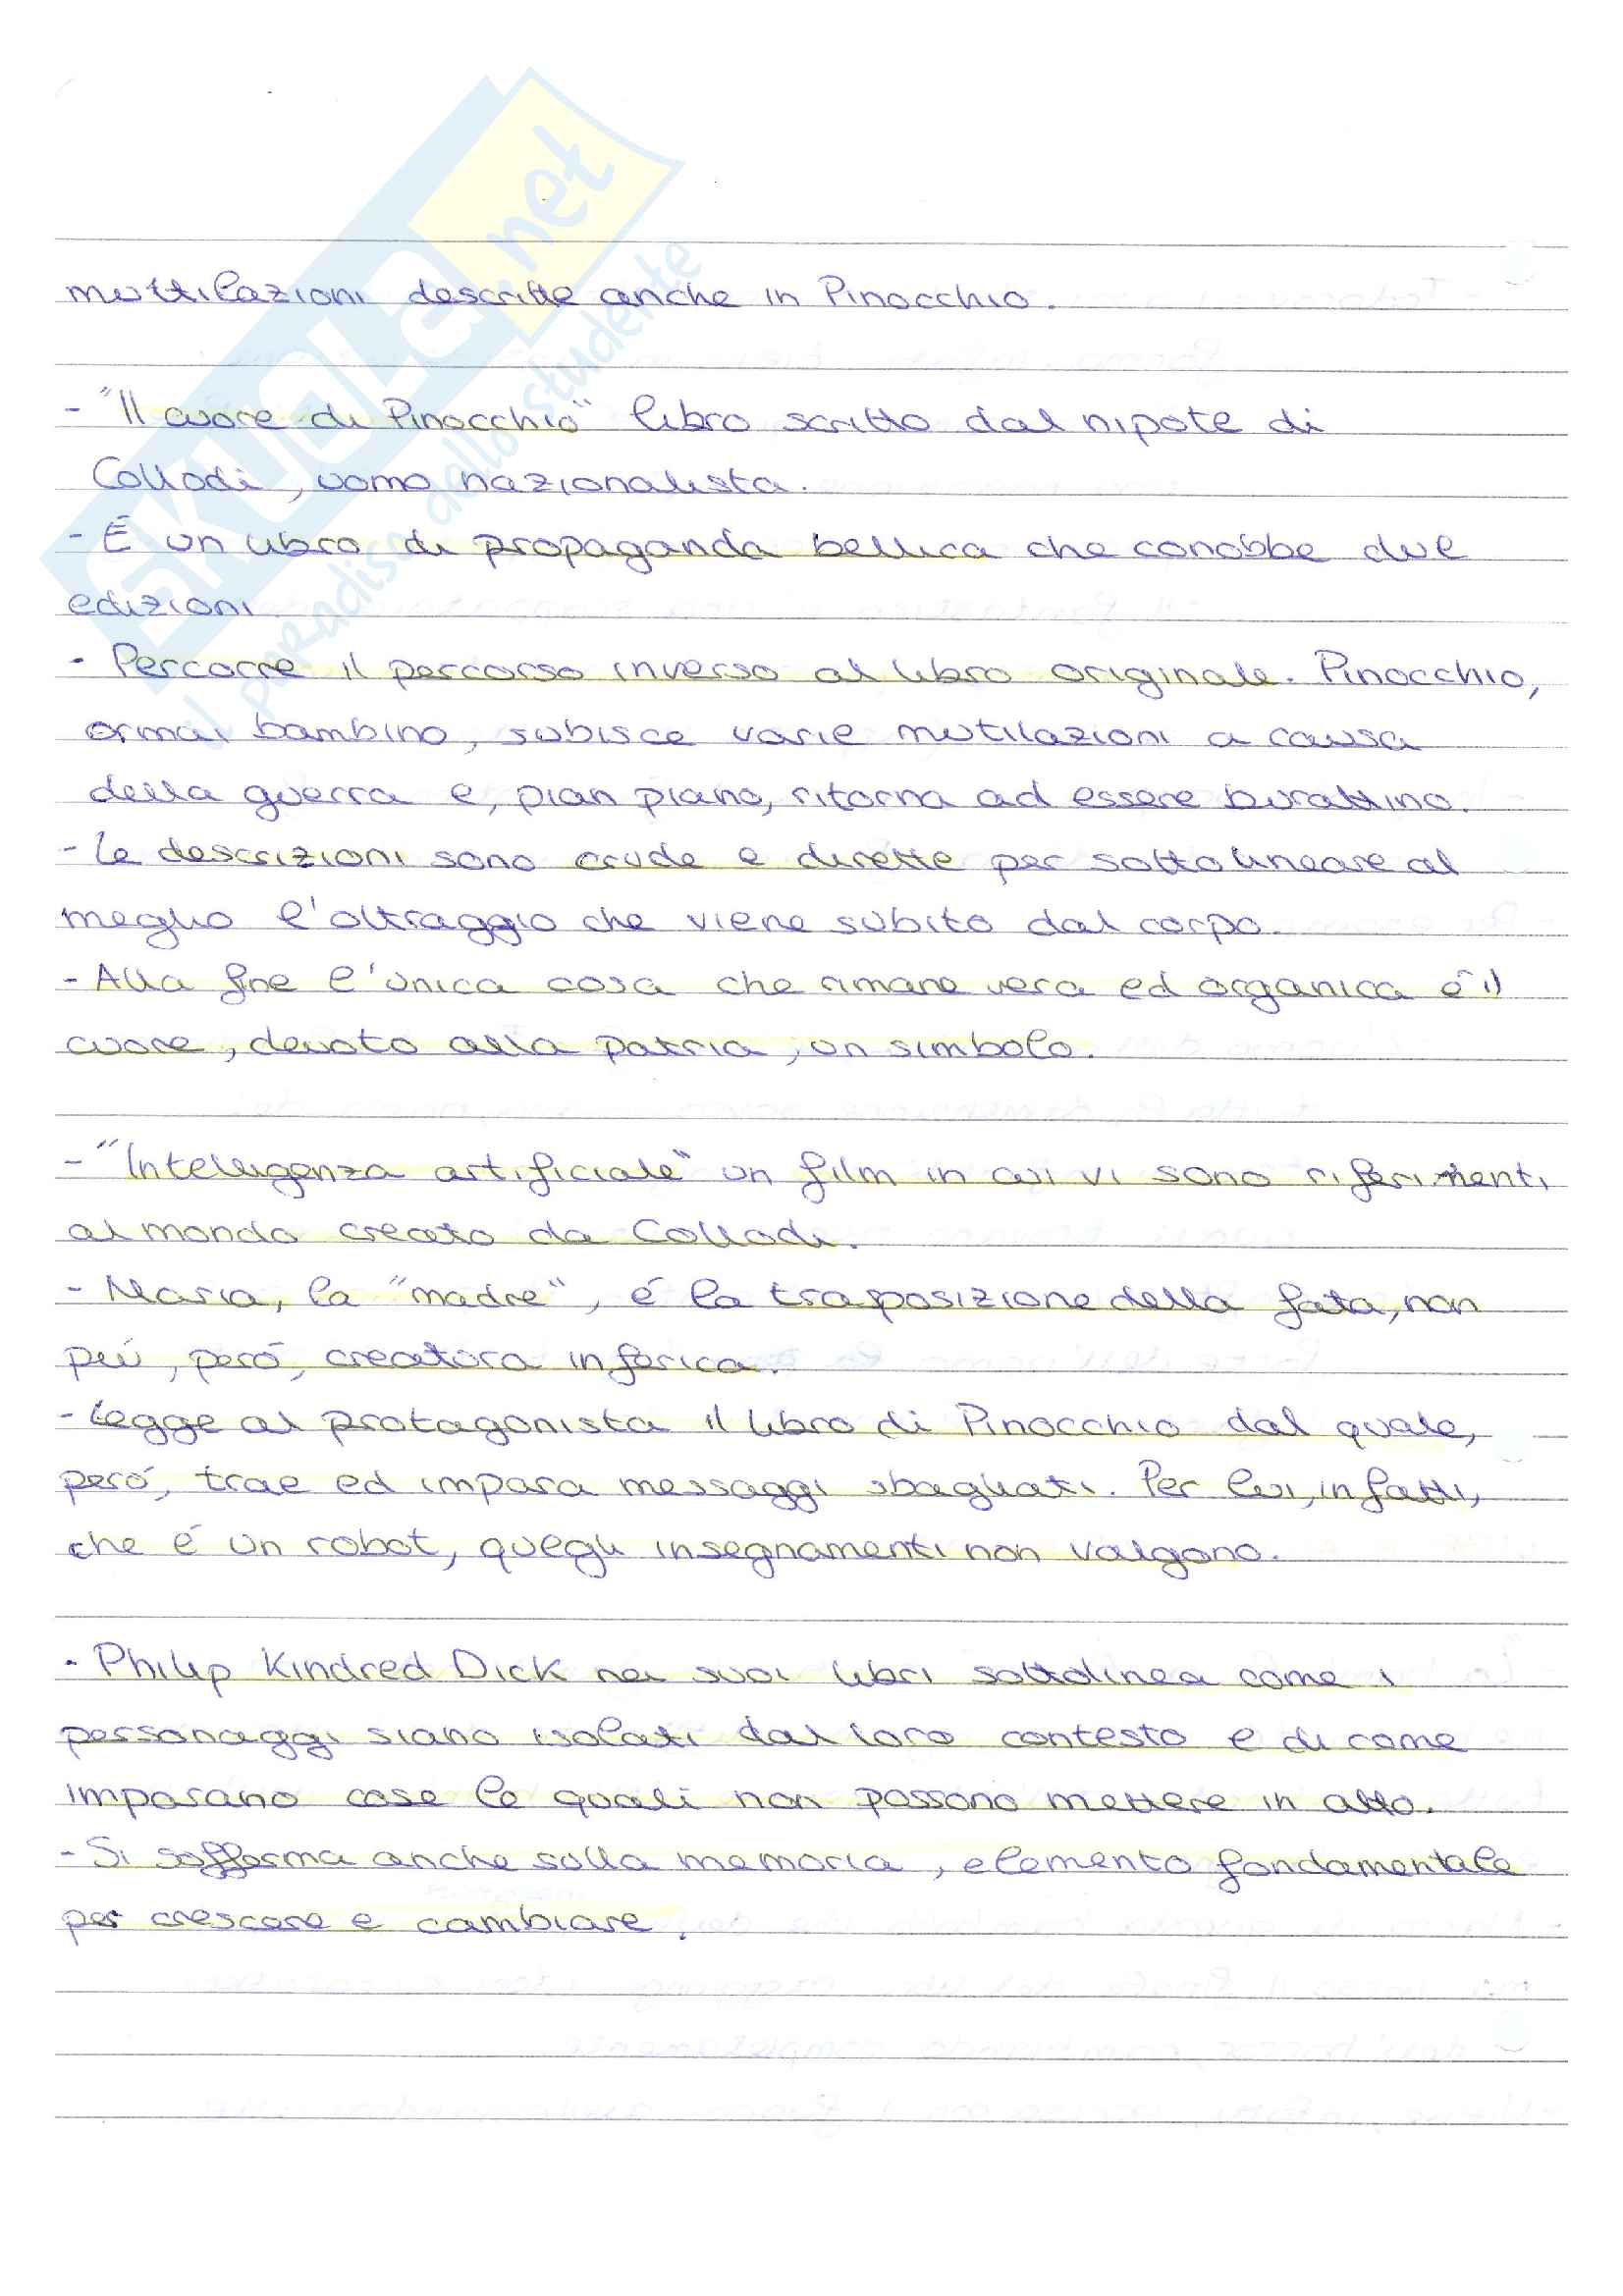 SKUOLA.net
il paradiso dello studente
muttilazioni descritte anche in Pinocchio.
- "Il cuore di Pinocchio" libro scritto dal nipote di
Collodi, uomo nazionalista.
- É un libro di propaganda bellica che conobbe due
edizioni
- Percorre il percorso inverso al libro originale. Pinocchio,
ormai bambino, subisce varie mutilazioni a causa
della guerra e, pian piano, ritorna ad essere burattino.
- Le descrizioni sono crude e dirette per sottolineare al
meglio l'oltraggio che viene subito dal corpo.
- Alla fine l'unica cosa che rimane vera ed organica é il
cuore, devoto alla patria, un simbolo.
- "Intelligenza artificiale" un film in cui vi sono riferimenti
al mondo creato da Collodi.
- Maria, la "madre", é la trasposizione della fata, non
piú, peró, creatura inferica.
- Legge al protagonista il libro di Pinocchio dal quale,
peró, trae ed impara messaggi sbagliati. Per lui, infatti,
che é un robot, quegli insegnamenti non valgono.
- Philip Kindred Dick nei suoi libri sottolinea come i
personaggi siano isolati dal loro contesto e di come
imparano cose le quali non possono mettere in atto.
- Si sofferma anche sulla memoria, elemento fondamentale
per crescere e cambiare.